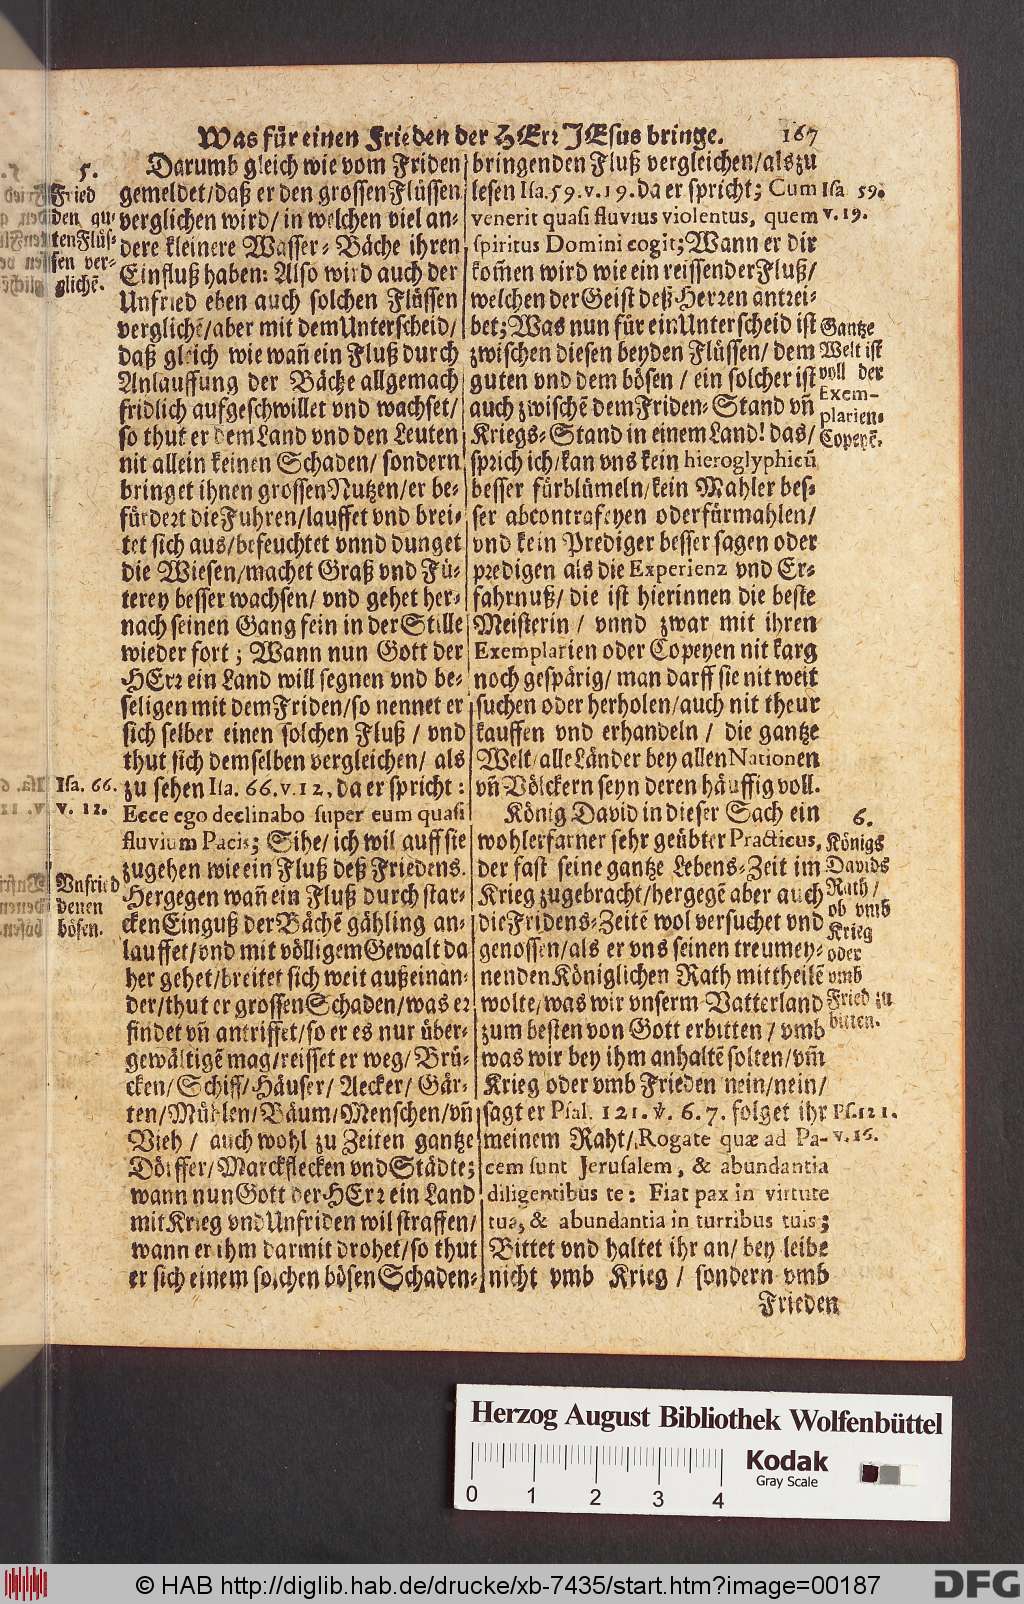 Was für einen Frieden der HErr JEsus bringe. 167
5.
Fried
den gu-
ten Flüs-
sen ver-
glichē.
Darumb gleich wie vom Friden
gemeldet/daß er den grossen Flüssen
verglichen wird/in welchen viel an-
dere kleinere Wasser-Bäche ihren
Einfluß haben: Also wird auch der
Unfried eben auch solchen Flüssen
verglichē/aber mit dem Unterscheid/
daß gleich wie wañ ein Fluß durch
Anlauffung der Bäche allgemach
fridlich aufgeschwillet vnd wachset/
so thut er dem Land vnd den Leuten
nit allein keinen Schaden/ sondern
bringet ihnen grossen Nutzen/er be-
fürdert die Fuhren/lauffet vnd brei-
tet sich aus/befeuchtet vnnd dunget
die Wiesen/machet Graß vnd Fü-
terey besser wachsen/ vnd gehet her-
nach seinen Gang fein in der Stille
wieder fort; Wann nun Gott der
HErr ein Land will segnen vnd be-
seligen mit dem Friden/so nennet er
sich selber einen solchen Fluß/ vnd
thut sich demselben vergleichen/ als
Isa. 66.
v. 12.
zu sehen Isa. 66. v. 12. da er spricht:
Ecce ego declinabo super eum quasi
fluvium Pacis; Sihe/ich wil auff sie
zugehen wie ein Fluß deß Friedens.
Vnfried
denen
bösen.
Hergegen wañ ein Fluß durch star-
cken Einguß der Bächē gähling an-
lauffet/vnd mit völligem Gewalt da
her gehet/breitet sich weit außeinan-
der/thut er grossen Schaden/was er
findet vñ antriffet/so er es nur über-
gewältigē mag/reisset er weg/ Brü-
cken/Schiff/Häuser/ Aecker/ Gär-
ten/Mühlen/Bäum/Menschen/vñ
Vieh/ auch wohl zu Zeiten gantze
Dörffer/Marckflecken vnd Städte;
wann nun Gott der HErr ein Land
mit Krieg vnd Unfriden wil straffen/
wann er ihm darmit drohet/so thut
er sich einem solchen bösen Schaden-
bringenden Fluß vergleichen/als zu
lesen Isa. 59. v. 19. da er spricht; Cum
venerit quasi fluvius violentus, quem
spiritus Domini cogit; Wann er dir
kom̃en wird wie ein reissender Fluß/
welchen der Geist deß Herren antrei-
bet; Was nun für ein Unterscheid ist
zwischen diesen beyden Flüssen/ dem
guten vnd dem bösen/ ein solcher ist
auch zwischē dem Friden-Stand vñ
Kriegs-Stand in einem Land! das/
sprich ich/kan vns kein hieroglyphicū
besser fürblümeln/kein Mahler bes-
ser abcontrafeyen oder fürmahlen/
vnd kein Prediger besser sagen oder
predigen als die Experienz vnd Er-
fahrnuß/ die ist hierinnen die beste
Meisterin/ vnnd zwar mit ihren
Exemplarien oder Copeyen nit karg
noch gespärig/ man darff sie nit weit
suchen oder herholen/auch nit theur
kauffen vnd erhandeln/ die gantze
Welt/alle Länder bey allen Nationen
vñ Völckern seyn deren häuffig voll.
Isa 59.
v. 19.
Gantze
Welt ist
voll der
Exem-
plarien-
Copeyē.
König David in dieser Sach ein
wohlerfarner sehr geübter Practicus,
der fast seine gantze Lebens-Zeit im
Krieg zugebracht/hergegē aber auch
die Fridens-Zeitē wol versuchet vnd
genossen/als er vns seinen treumey-
nenden Königlichen Rath mittheilē
wolte/was wir vnserm Vatterland
zum besten von Gott erbitten/ vmb
was wir bey ihm anhaltē solten/vm̃
Krieg oder vmb Frieden nein/nein/
sagt er Psal. 121. v. 6. 7. folget ihr
meinem Raht/ Rogate quæ ad Pa-
cem sunt Jerusalem, & abundantia
diligentibus te: Fiat pax in virtute
tua, & abundantia in turribus tuis;
Bittet vnd haltet ihr an/ bey leibe
nicht vmb Krieg/ sondern vmb
6.
Königs
Davids
Rath/
ob vmb
Krieg
oder
vmb
Fried zu
bitten.
Ps. 121.
v. 16.
Frieden
Herzog August Bibliothek Wolfenbüttel
Kodak
Gray Scale
0 1 2 3 4
© HAB http://diglib.hab.de/drucke/xb-7435/start.htm?image=00187
DFG